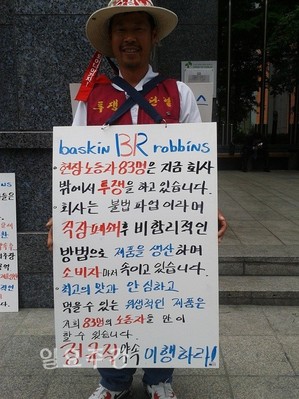 투쟁 단결
baskin BR robbins
현장 노동자 83명은 지금 회사
밖에서 투쟁을 하고 있습니다.
· 회사는 불법 파업이라며
직장폐쇄후 비합리적인
방법으로 제품을 생산하며
소비자마저 속이고 있습니다.
· 최고의 맛과 안심하고
먹을 수 있는 위생적인 제품은
저희 83명의 노동자들만이
할 수 있습니다.
정규직 약속 이행하라!